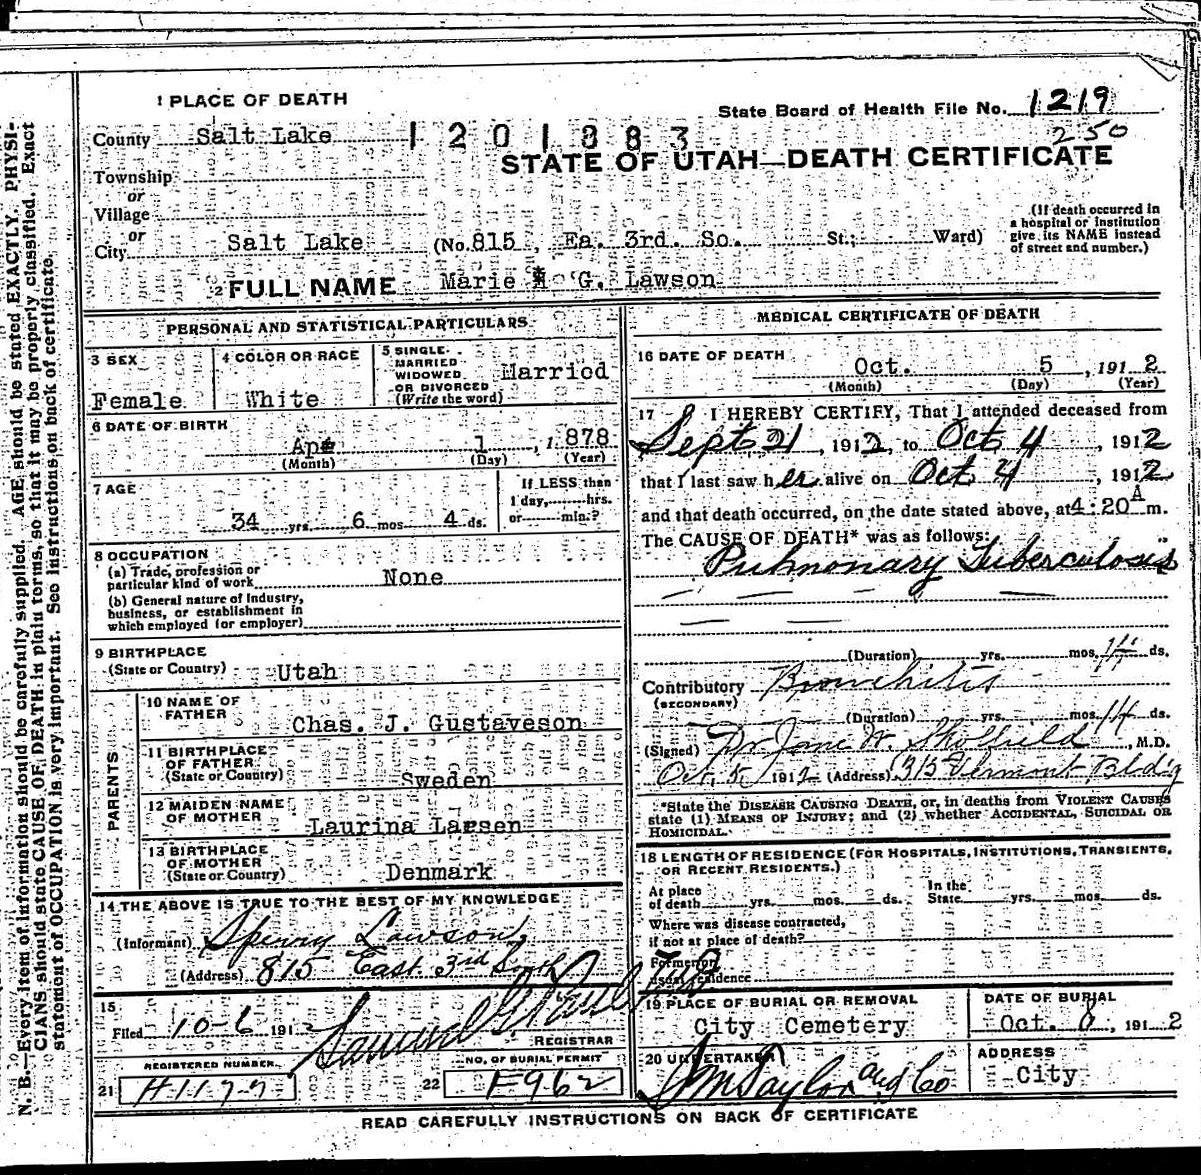 1 PLACE OF DEATH
State Board of Health File No. 1219
County Salt Lake 1201883
250
STATE OF UTAH—DEATH CERTIFICATE
Township
or
Village
or
City Salt Lake (No. 815, Ea. 3rd. So. St.; Ward)
(If death occurred in
a hospital or institution
give its NAME instead
of street and number.)
2 FULL NAME Marie G. Lawson
PERSONAL AND STATISTICAL PARTICULARS
3 SEX
Female
4 COLOR OR RACE
White
5 SINGLE
MARRIED
WIDOWED
OR DIVORCED
(Write the word)
Married
6 DATE OF BIRTH
Apr 1, 1878
(Month) (Day) (Year)
7 AGE
34 yrs. 6 mos. 4 ds.
If LESS than
1 day, hrs.
or min.?
8 OCCUPATION
(a) Trade, profession or
particular kind of work None
(b) General nature of industry,
business, or establishment in
which employed (or employer)
9 BIRTHPLACE
(State or Country) Utah
PARENTS
10 NAME OF
FATHER
Chas. J. Gustaveson
11 BIRTHPLACE
OF FATHER
(State or Country) Sweden
12 MAIDEN NAME
OF MOTHER
Laurina Larsen
13 BIRTHPLACE
OF MOTHER
(State or Country) Denmark
14 THE ABOVE IS TRUE TO THE BEST OF MY KNOWLEDGE
(Informant) Sperry Lawson
(Address) 815 East 3rd South
15
Filed 10-6 191 2 Samuel G. Paul
REGISTRAR
REGISTERED NUMBER
21 H1177
NO. OF BURIAL PERMIT
22 F962
MEDICAL CERTIFICATE OF DEATH
16 DATE OF DEATH
Oct. 5, 1912
(Month) (Day) (Year)
17 I HEREBY CERTIFY, That I attended deceased from
Sept 21, 1912, to Oct 4, 1912
that I last saw her alive on Oct 4, 1912
and that death occurred, on the date stated above, at 4:20 A m.
The CAUSE OF DEATH* was as follows:
Pulmonary Tuberculosis
(Duration) yrs. mos. 14 ds.
Contributory Bronchitis
(SECONDARY)
(Duration) yrs. mos. 14 ds.
(Signed) Dr Jane W. Skolfield, M.D.
Oct 5, 1912 (Address) 315 Vermont Bldg
*State the DISEASE CAUSING DEATH, or, in deaths from VIOLENT CAUSES
state (1) MEANS OF INJURY; and (2) whether ACCIDENTAL, SUICIDAL OR
HOMICIDAL.
18 LENGTH OF RESIDENCE (FOR HOSPITALS, INSTITUTIONS, TRANSIENTS,
OR RECENT RESIDENTS.)
At place
of death yrs. mos. ds.
In the
State yrs. mos. ds.
Where was disease contracted,
if not at place of death?
Former or
usual residence
19 PLACE OF BURIAL OR REMOVAL
City Cemetery
DATE OF BURIAL
Oct. 8, 1912
20 UNDERTAKER
ADDRESS
City
READ CAREFULLY INSTRUCTIONS ON BACK OF CERTIFICATE
N. B.—Every item of information should be carefully supplied. AGE should be stated EXACTLY. PHYSI-
CIANS should state CAUSE OF DEATH in plain terms, so that it may be properly classified. Exact
statement of OCCUPATION is very important. See instructions on back of certificate.